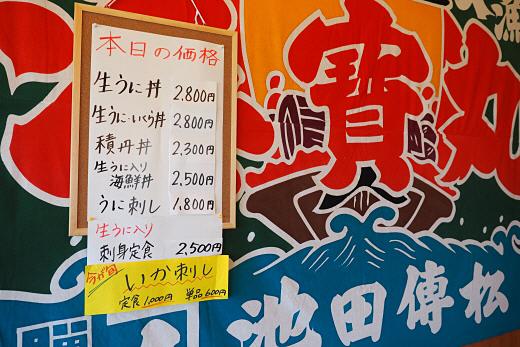 本日の価格
生うに丼 2,800円
生うに・いくら丼 2,800円
積丹丼 2,300円
生うに入り
海鮮丼 2,500円
うに刺し 1,800円
生うに入り
刺身定食 2,500円
今が旬
いか刺し
定食1,000円 単品600円
寶
丸
池田傳松